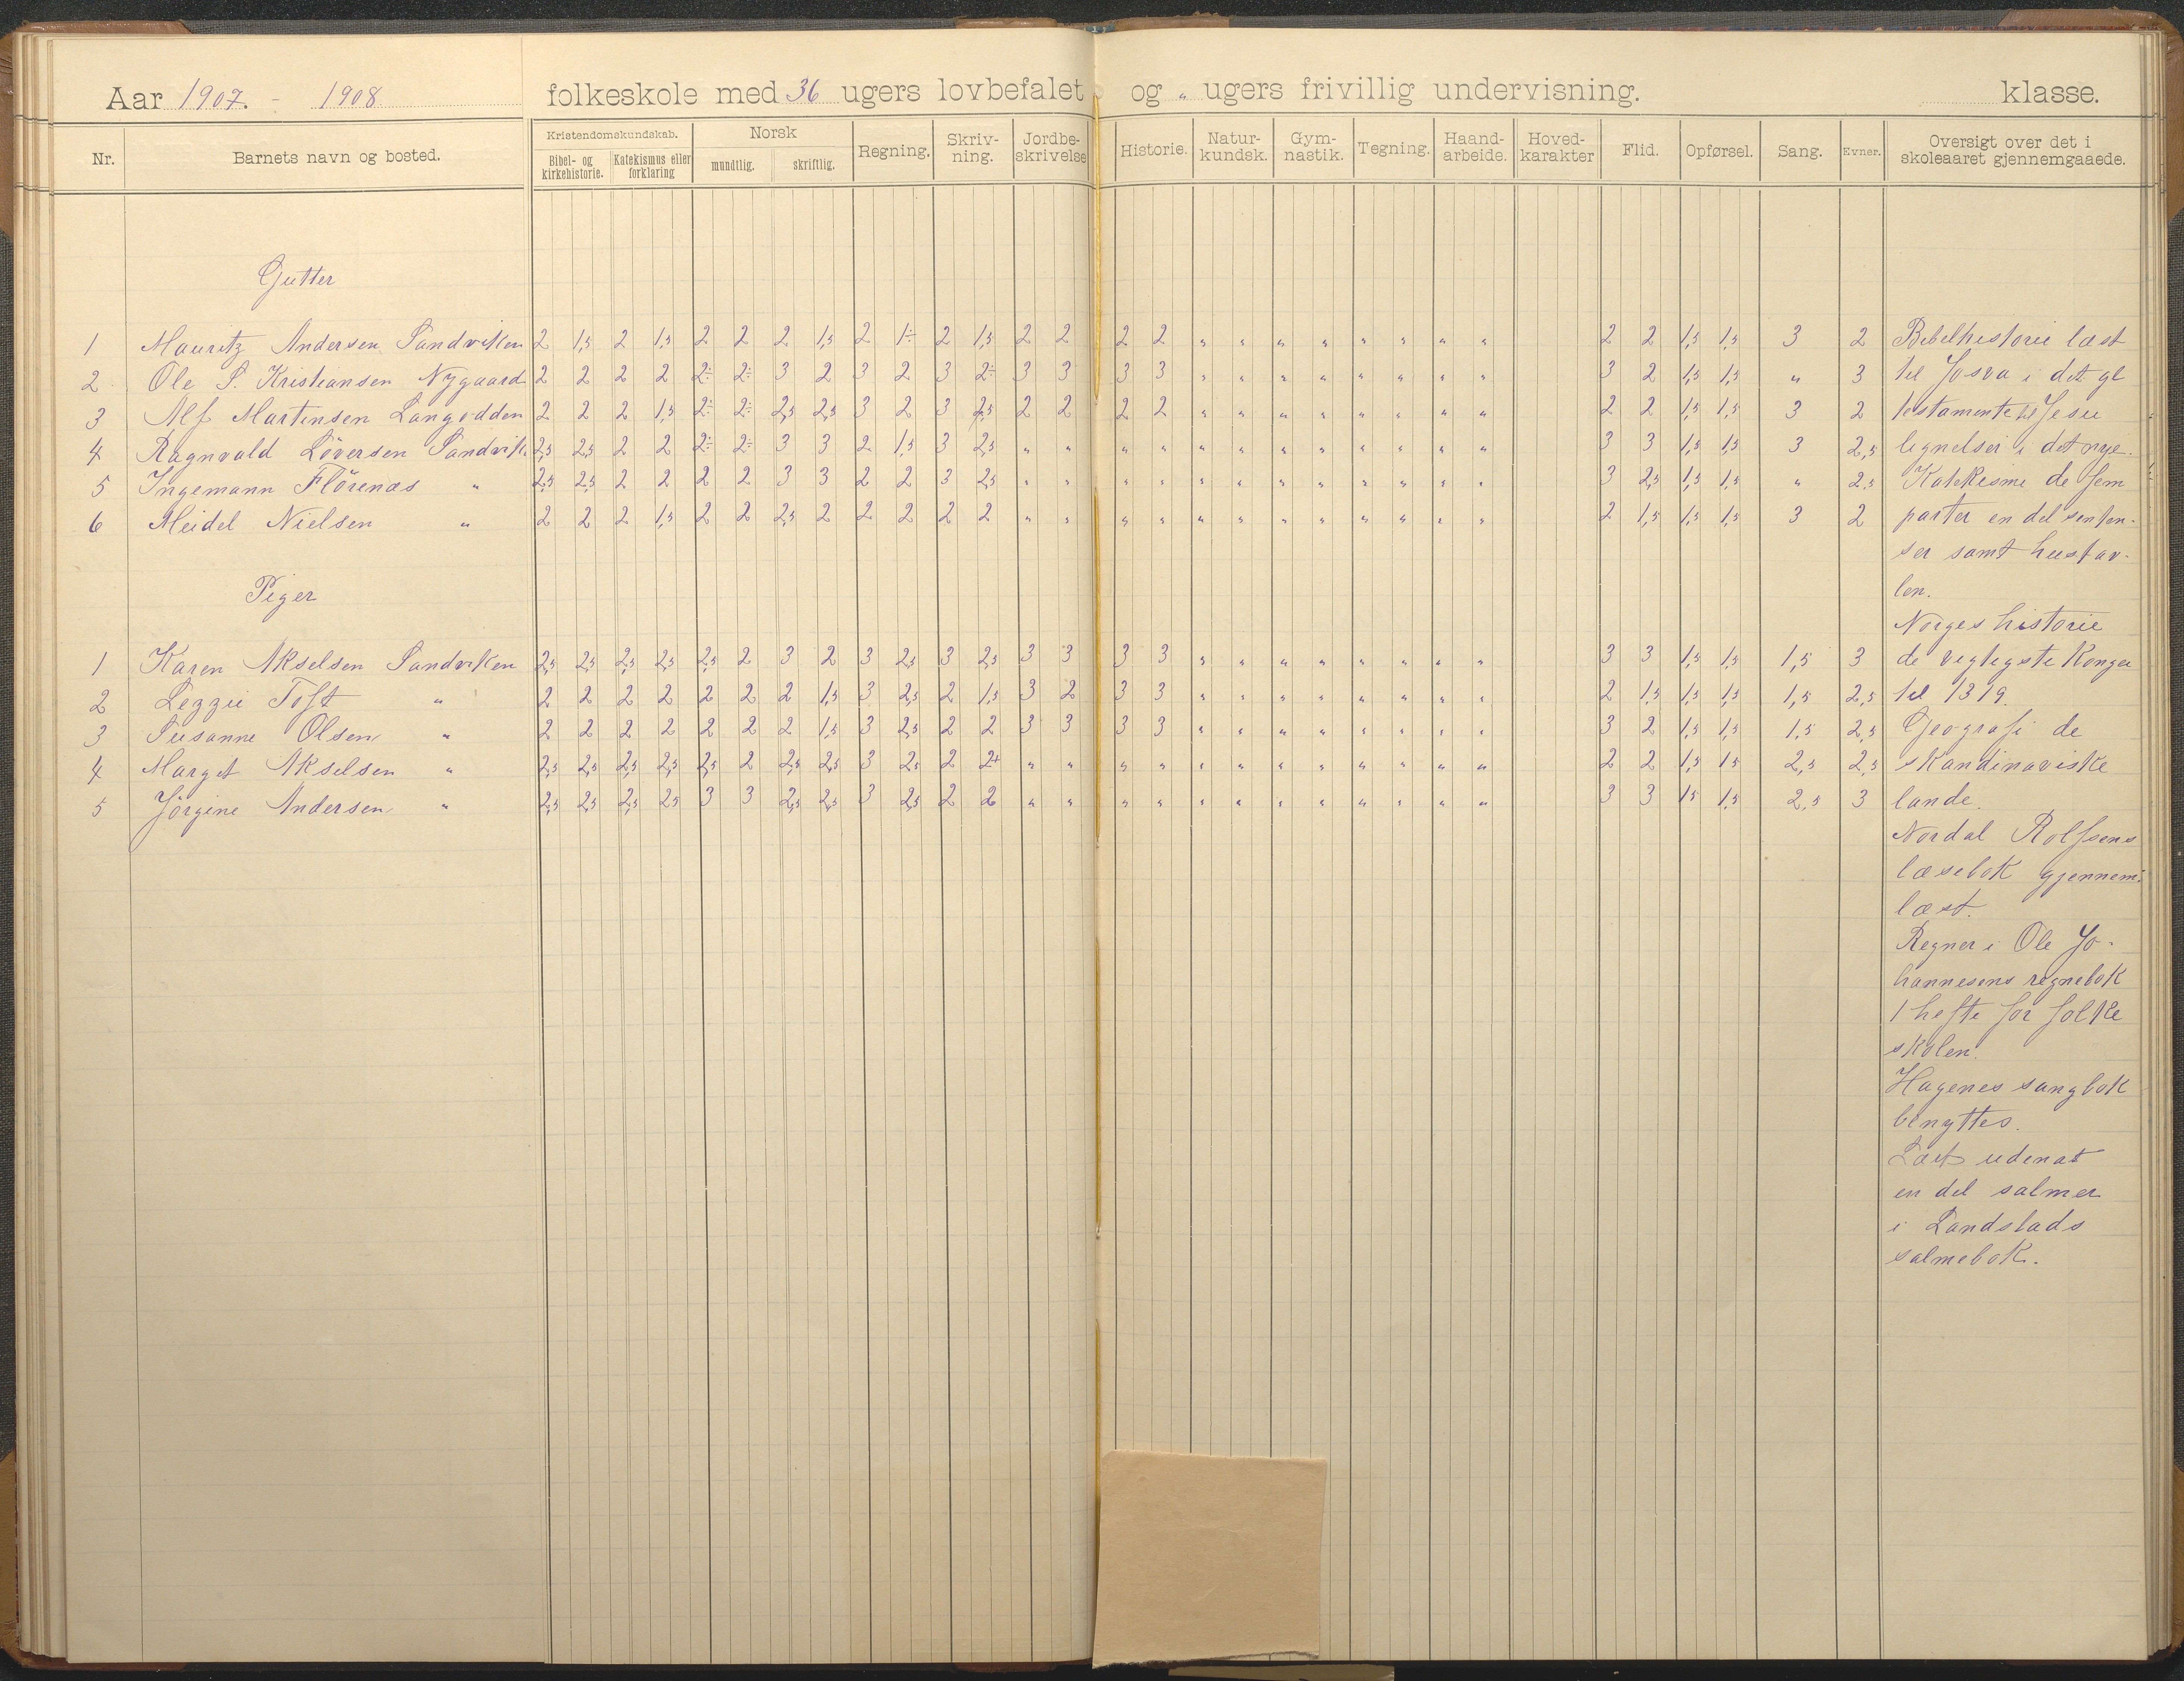 Aar 1907. - 1908 folkeskole med 36 ugers lovbefalet og " ugers frivillig undervisning. klasse.
Nr. Barnets navn og bosted. Kristendomskundskab. Bibel- og kirkehistorie. Katekismus eller forklaring Norsk mundtlig. skriftlig. Regning. Skriv-ning. Jordbe-skrivelse Historie. Natur-kundsk. Gym-nastik. Tegning. Haand-arbeide. Hoved-karakter Flid. Opførsel. Sang. Evner. Oversigt over det i skoleaaret gjennemgaaede.
Gutter
1 Mauritz Andersen Sandviken 2 1,5 2 1,5 2 2 2 1,5 2 1÷ 2 1,5 2 2 2 2 " " " " " " " " 2 2 1,5 1,5 3 2 Bibelhistorie læst
2 Ole S. Kristiansen Nygaard 2 2 2 2 2÷ 2÷ 3 2 3 2 3 2÷ 3 3 3 3 " " " " " " " " 3 2 1,5 1,5 " 3 til Josva i det gl
3 Alf Martinsen Langodden 2 2 2 1,5 2÷ 2÷ 2,5 2,5 3 2 3 2,5 2 2 2 2 " " " " " " " " 2 2 1,5 1,5 3 2 testamente til Jesu
4 Ragnvald Löversen Sandvik. 2,5 2,5 2 2 2÷ 2÷ 3 3 2 1,5 3 2,5 " " " " " " " " " " " " 3 3 1,5 1,5 3 2,5 lignelser i det nye.
5 Ingemann Flörenæs " 2,5 2,5 2 2 2 2 3 3 2 2 3 2,5 " " " " " " " " " " " " 3 2,5 1,5 1,5 " 2,5 Katekisme de fem
6 Meidel Nielsen " 2 2 2 1,5 2 2 2,5 2 2 2 2 2 " " " " " " " " " " " " 2 1,5 1,5 1,5 3 2 parter en del senten-
ser samt hustav-
Piger
len.
Norges historie
1 Karen Akselsen Sandviken 2,5 2,5 2,5 2,5 2,5 2 3 2 3 2,5 3 2,5 3 3 3 3 " " " " " " " " 3 3 1,5 1,5 1,5 3 de vigtigste Konger
2 Lezzie Toft " 2 2 2 2 2 2 2 1,5 3 2,5 2 1,5 3 2 3 3 " " " " " " " " 2 1,5 1,5 1,5 1,5 2,5 til 1319.
3 Susanne Olsen " 2 2 2 2 2 2 2 1,5 3 2,5 2 2 3 3 3 3 " " " " " " " " 3 2 1,5 1,5 1,5 2,5 Geografi de
4 Margit Akselsen " 2,5 2,5 2,5 2,5 2,5 2 2,5 2,5 3 2,5 2 2+ " " " " " " " " " " " " 2 2 1,5 1,5 2,5 2,5 skandinaviske
5 Jörgine Andersen " 2,5 2,5 2,5 2,5 3 3 2,5 2,5 3 2,5 2 2 " " " " " " " " " " " " 3 3 1,5 1,5 2,5 3 lande.
Nordal Rolfsens
læsebok gjennem-
læst.
Regner i Ole Jo-
hannesens regnebok
1 hefte for folke
skolen.
Hagenes sangbok
benyttes.
Lært udenat
en del salmer
i Landstads
salmebok.